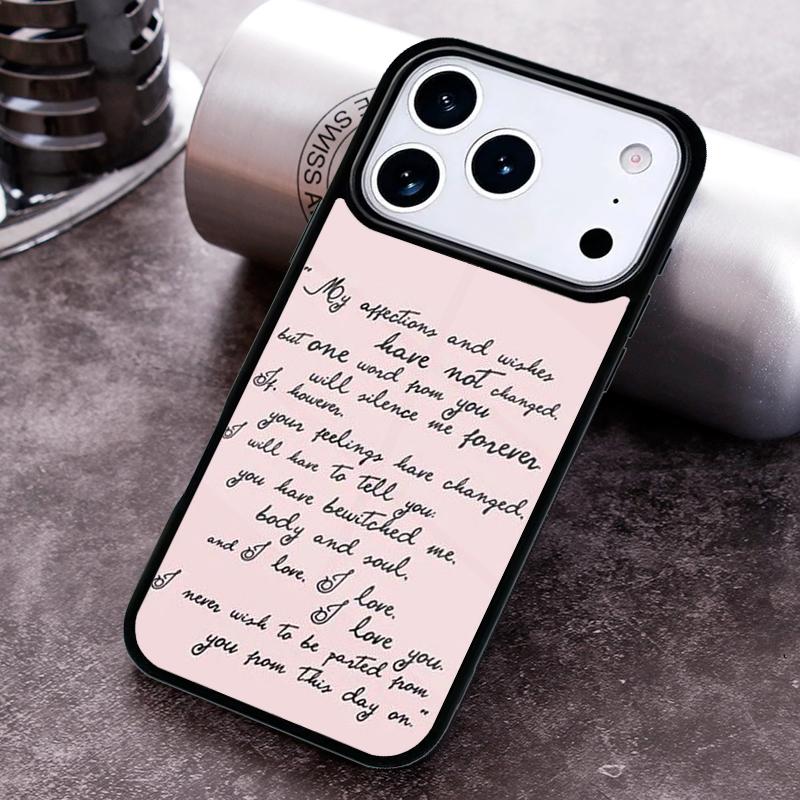 THE SWISS A
"My affections and wishes
have not changed,
but one word from you
will silence me forever
If, however,
your feelings have changed,
I will have to tell you:
you have bewitched me,
body and soul,
and I love, I love,
I love you.
I never wish to be parted from
you from this day on."